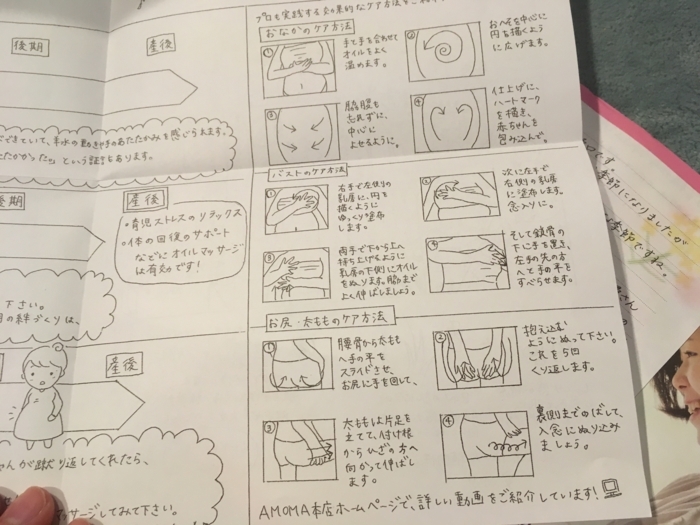 後期
産後
できていて、羊水の動きや手のあたたかみを感じられます。
という話もあります。
後期
産後
・育児ストスのリラックス
・体の回復のサポート
などにオイルマッサージ
は有効です!
下さい。
の絆づくりは、
産後
ゃんが蹴り返してくれたら、
マッサージしてみて下さい。
プロも実践する効果的なケア方法をご
おなかのケア方法
①
手と手を合わせて
オイルをよく
温めます。
②
おへそを中心に
円を描くように
広げます。
③
脇腹も
忘れずに、
中心に
よせるように。
④
仕上げに、
ハートマーク
を描き、
赤ちゃんを
包み込んで。
バストのケア方法
①
右手で左側の
乳房に、円を
描くように
ゆっくり塗布
します。
②
次に左手で
右側の乳房
に塗布します。
念入りに。
③
両手で下から上へ
持ち上げるように
乳房の下側にオイル
をぬります。脇の下まで
よく伸ばしましょう。
④
そして鎖骨の
下に手を置き、
左手の先の方
へと手の平を
すべらせます。
お尻・太もものケア方法
①
腰骨から太もも
へ手の平を
スライドさせ、
お尻に手を回して、
②
抱え込む
ようにぬって下さい。
これを5回
くり返します。
③
太ももは片足を
立てて、付け根
からひざの方へ
向かって伸ばし
ます。
④
裏側までのばして、
入念にぬり込み
ましょう。
AMOMA本店ホームページで、詳しい動画をご紹介しています!
季節になりましたが
季節ですね。
さん